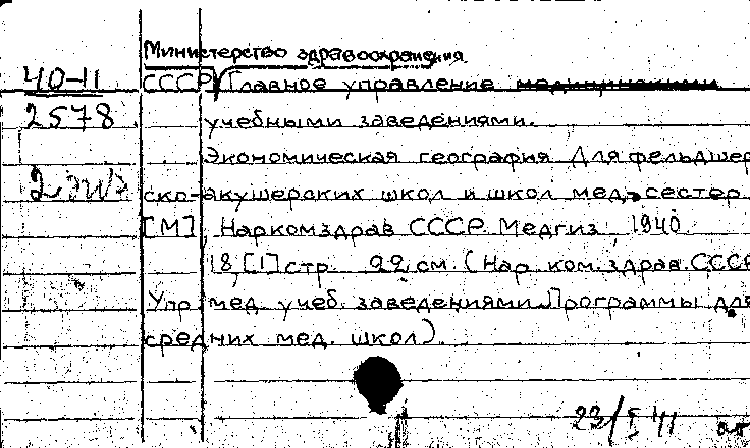 Министерство здравоохранения
40-11 СССР Главное управление медицинскими
2578 учебными заведениями.
Экономическая география Для фельдшер
2 экз ско-акушерских школ и школ мед. сестер.
[М], Наркомздрав СССР. Медгиз, 1940.
18,[1] стр. 22 см. (Нар. ком. здрав. СССР
Упр. мед. учеб. заведениями. Программы для
средних мед. школ).
23/I 41